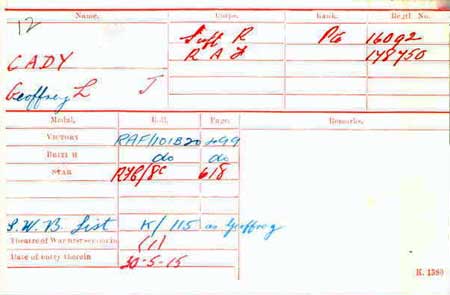 Name. Corps. Rank. Regtl. No.
12
Suff R Pte 16092
CADY R A F 148750
Geoffrey L J
Medal. Roll. Page. Remarks.
VICTORY RAF/101B20 499
BRITISH do do
STAR 618
S.W.B. List K/115 as Geoffrey
Theatre of War first served in (1)
Date of entry therein 30-5-15
K. 1380